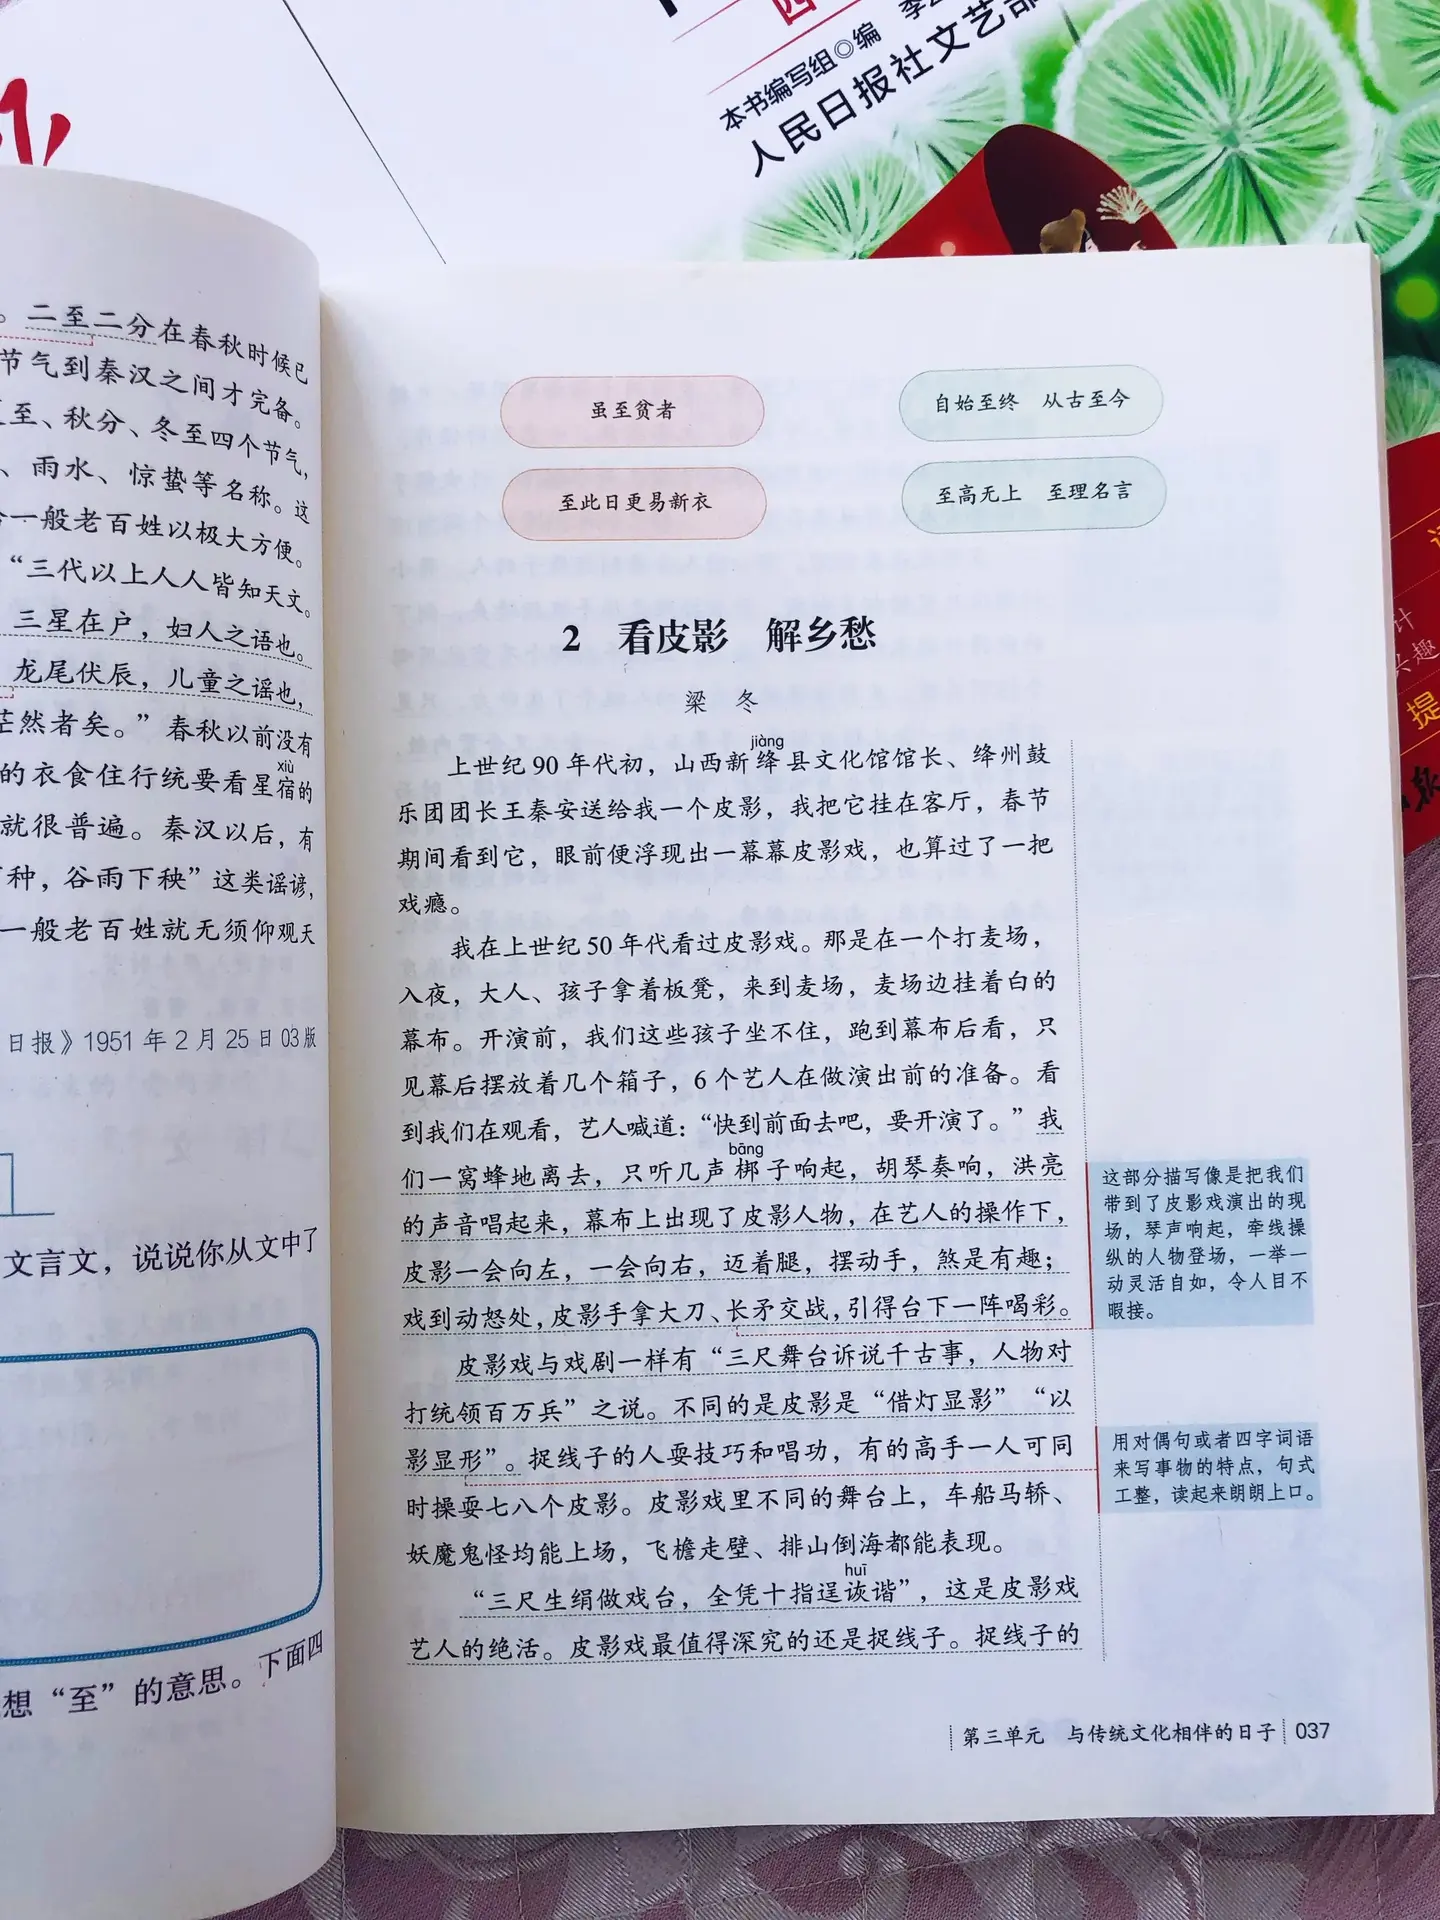 本书编写组◎编
人民日报社文艺部
。二至二分在春秋时候已
节气到秦汉之间才完备。
至、秋分、冬至四个节气,
、雨水、惊蛰等名称。这
一般老百姓以极大方便。
“三代以上人人皆知天文。
三星在户，妇人之语也。
龙尾伏辰，儿童之谣也，
茫然者矣。”春秋以前没有
xiù
的衣食住行统要看星宿的
就很普遍。秦汉以后，有
种，谷雨下秧”这类谣谚，
一般老百姓就无须仰观天
日报》1951年2月25日03版
文言文，说说你从文中了
想“至”的意思。下面四
虽至贫者
自始至终 从古至今
至此日更易新衣
至高无上 至理名言
2 看皮影 解乡愁
梁 冬
jiàng
上世纪90年代初，山西新绛县文化馆馆长、绛州鼓
乐团团长王秦安送给我一个皮影，我把它挂在客厅，春节
期间看到它，眼前便浮现出一幕幕皮影戏，也算过了一把
戏瘾。
我在上世纪50年代看过皮影戏。那是在一个打麦场，
入夜，大人、孩子拿着板凳，来到麦场，麦场边挂着白的
幕布。开演前，我们这些孩子坐不住，跑到幕布后看，只
见幕后摆放着几个箱子，6个艺人在做演出前的准备。看
到我们在观看，艺人喊道：“快到前面去吧，要开演了。”我
bāng
们一窝蜂地离去，只听几声梆子响起，胡琴奏响，洪亮
的声音唱起来，幕布上出现了皮影人物，在艺人的操作下，
皮影一会向左，一会向右，迈着腿，摆动手，煞是有趣；
戏到动怒处，皮影手拿大刀、长矛交战，引得台下一阵喝彩。
皮影戏与戏剧一样有“三尺舞台诉说千古事，人物对
打统领百万兵”之说。不同的是皮影是“借灯显影”“以
影显形”。捉线子的人耍技巧和唱功，有的高手一人可同
时操耍七八个皮影。皮影戏里不同的舞台上，车船马轿、
妖魔鬼怪均能上场，飞檐走壁、排山倒海都能表现。
huī
“三尺生绢做戏台，全凭十指逞诙谐”，这是皮影戏
艺人的绝活。皮影戏最值得深究的还是捉线子。捉线子的
这部分描写像是把我们
带到了皮影戏演出的现
场，琴声响起，牵线操
纵的人物登场，一举一
动灵活自如，令人目不
暇接。
用对偶句或者四字词语
来写事物的特点，句式
工整，读起来朗朗上口。
第三单元 与传统文化相伴的日子 037
计
兴趣
提